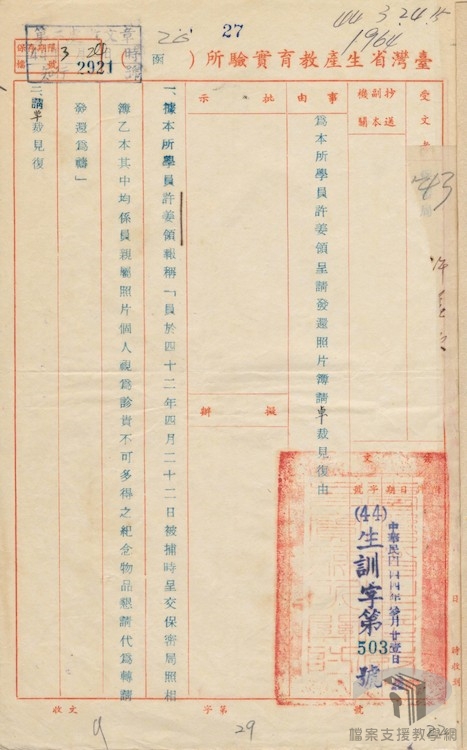 27
44 3 24 15
1964
臺灣省生產教育實驗所(函)
2921
受文者
抄送
副本
機關
事由
批示
擬辦
43
為本所學員許姜領呈請發還照片簿請卓裁見復由
一、據本所學員許姜領報稱「員於四十二年四月二十二日被捕時呈交保密局照相
簿乙本其中均係員親屬照片個人視為珍貴不可多得之紀念物品懇請代為轉請
發還為禱」
二、請卓裁見復
中華民國四四年參月廿壹日
(44)生訓字第503號
收文
字第
號
29
日
時收到
檔案支援教學網